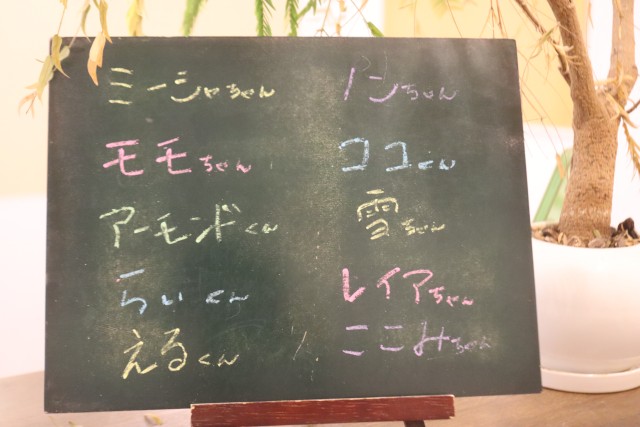 ミーシャちゃん
モモちゃん
アーモンドくん
らいくん
えるくん
ノンちゃん
ココくん
雪ちゃん
レイアちゃん
ここみちゃん